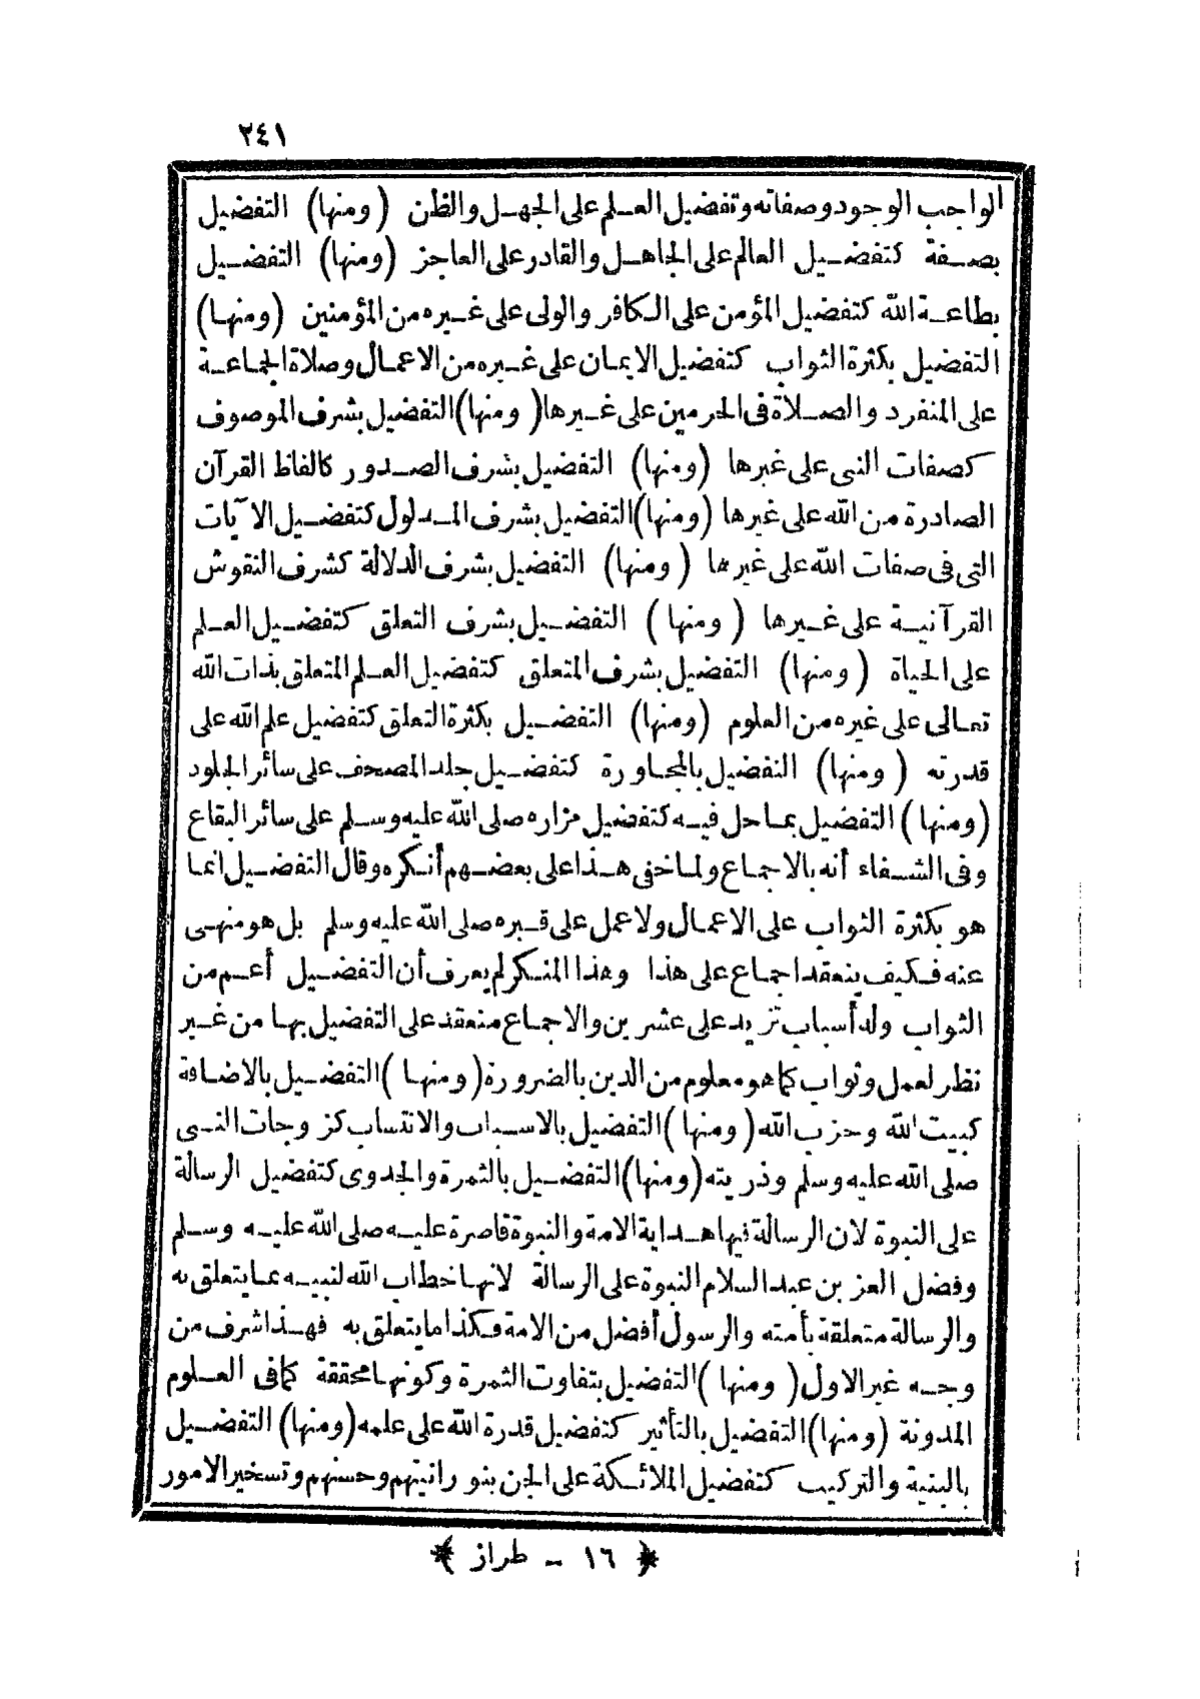 ٢٤١
الواجب الوجود وصفاته وتفضيل العلم على الجهل والظن (ومنها) التفضيل
بصفة كتفضيل العالم على الجاهل والقادر على العاجز (ومنها) التفضيل
بطاعة الله كتفضيل المؤمن على الكافر والولى على غيره من المؤمنين (ومنها)
التفضيل بكثرة الثواب كتفضيل الايمان على غيره من الاعمال وصلاة الجماعة
على المنفرد والصلاة فى الحرمين على غيرها (ومنها) التفضيل بشرف الموصوف
كصفات النبى على غيرها (ومنها) التفضيل بشرف الصدور كالفاظ القرآن
الصادرة من الله على غيرها (ومنها) التفضيل بشرف المدلول كتفضيل الآيات
التى فى صفات الله على غيرها (ومنها) التفضيل بشرف الدلالة كشرف النقوش
القرآنية على غيرها (ومنها) التفضيل بشرف التعلق كتفضيل العلم
على الحياة (ومنها) التفضيل بشرف المتعلق كتفضيل العلم المتعلق بذات الله
تعالى على غيره من العلوم (ومنها) التفضيل بكثرة التعلق كتفضيل علم الله على
قدرته (ومنها) التفضيل بالمجاورة كتفضيل جلد المصحف على سائر الجلود
(ومنها) التفضيل بما حل فيه كتفضيل مزاره صلى الله عليه وسلم على سائر البقاع
وفى الشفاء أنه بالاجماع ولما خفى هذا على بعضهم أنكره وقال التفضيل انما
هو بكثرة الثواب على الاعمال ولا عمل على قبره صلى الله عليه وسلم بل هو منهى
عنه فكيف ينعقد اجماع على هذا وهذا المنكر لم يعرف أن التفضيل أعم من
الثواب وله أسباب تزيد على عشرين والاجماع منعقد على التفضيل بها من غير
نظر لعمل وثواب كما هو معلوم من الدين بالضرورة (ومنها) التفضيل بالاضافة
كبيت الله وحزب الله (ومنها) التفضيل بالاسباب والانتساب كزوجات النبى
صلى الله عليه وسلم وذريته (ومنها) التفضيل بالثمرة والجدوى كتفضيل الرسالة
على النبوة لان الرسالة فيها هداية الامة والنبوة قاصرة عليه صلى الله عليه وسلم
وفضل العز بن عبد السلام النبوة على الرسالة لانها خطاب الله لنبيه عما يتعلق به
والرسالة متعلقة بأمته والرسول أفضل من الامة فكذا ما يتعلق به فهذا شرف من
وجه غير الاول (ومنها) التفضيل بتفاوت الثمرة وكونها محققة كما فى العلوم
المدونة (ومنها) التفضيل بالتأثير كتفضيل قدرة الله على علمه (ومنها) التفضيل
بالبنية والتركيب كتفضيل الملائكة على الجن بنورانيتهم وحسنهم وتسخير الامور
﴿ ١٦ - طراز ﴾